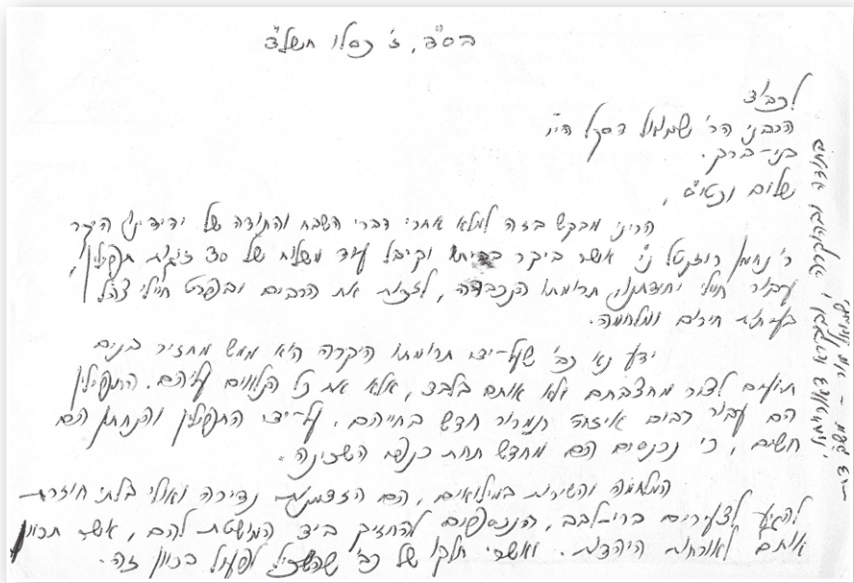 בס"ד, ז' כסלו תשל"ד
לכב'
הרבני הר' שמואל דסקל הי"ו
בני-ברק.
שלום וכט"ס,
הריני מבקש בזה למלא אחרי דברי השבח והתודה של ידידינו היקר
ר' נחמן רוזנטל ני' אשר ביקר בביתו וקיבל עוד משלוח של 30 זוגות תפילין,
עבור חיילי יחידתנו, תרומתו הנכבדה, לזכות את הרבים ובפרט חיילי צה"ל
בעיתות חירום ומלחמה.
ידע נא כב' שעל-ידי תרומתו היקרה היא ממש מחזיר בנים
תועים לצור מחצבתם ולא אותם בלבד, אלא את כל הנלווים עליהם. התפילין
הם עבור רבים איזה תמרור חדש בחייהם. על-ידי התפילין והנחתן הם
חשים, כי נכנסים הם מחדש תחת כנפי השכינה.
המלחמה והשירות במילואים, הם הזדמנות נדירה ואולי בלתי חוזרת
להגיע לצעירים ברי-לבב, הנכספים להחזיק ביד המושטת להם, אשר תכוון
אותם לאורחות היהדות. ואשרי חלקו של כב' שהשכיל לפעול בכוון זה.